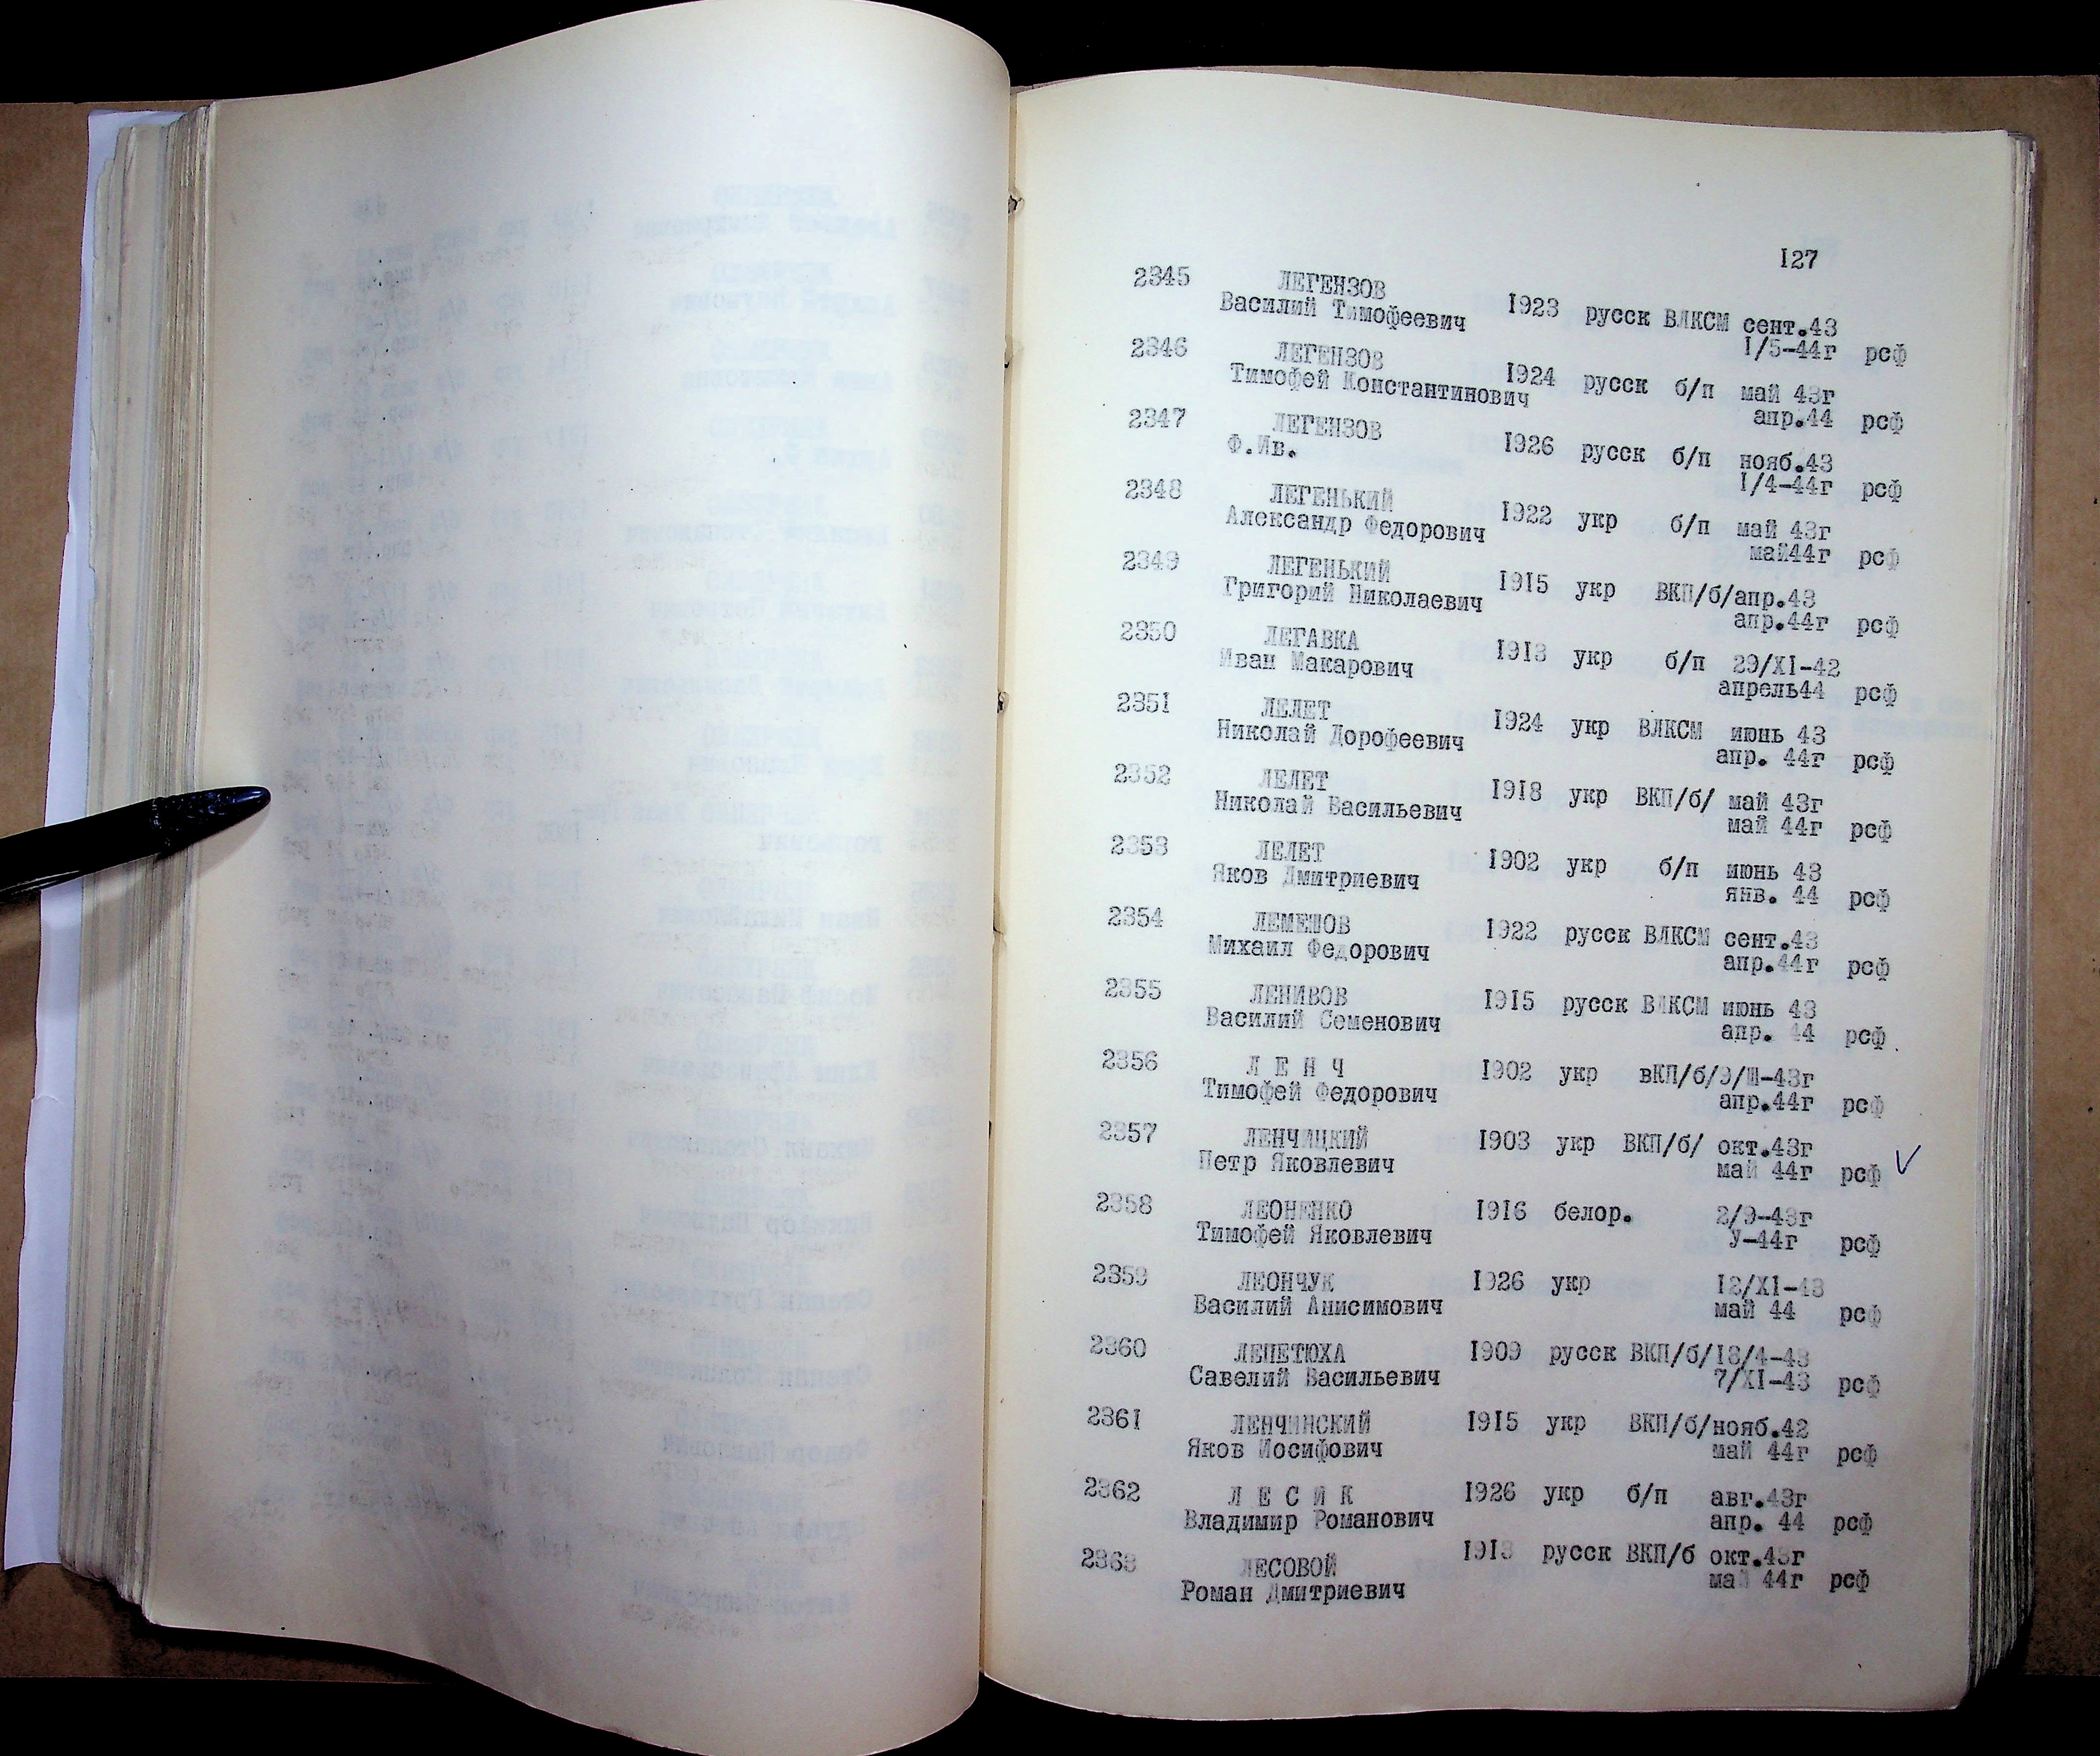 127
2345 ЛЕГЕНЗОВ
Василий Тимофеевич 1923 русск ВЛКСМ сент.43
1/5-44г рсф
2346 ЛЕГЕНЗОВ
Тимофей Константинович 1924 русск б/п май 43г
апр.44 рсф
2347 ЛЕГЕНЗОВ
Ф.Ив. 1926 русск б/п нояб.43
1/4-44г рсф
2348 ЛЕГЕНЬКИЙ
Александр Федорович 1922 укр б/п май 43г
май44г рсф
2349 ЛЕГЕНЬКИЙ
Григорий Николаевич 1915 укр ВКП/б/апр.43
апр.44г рсф
2350 ЛЕГАВКА
Иван Макарович 1913 укр б/п 29/XI-42
апрель44 рсф
2351 ЛЕЛЕТ
Николай Дорофеевич 1924 укр ВЛКСМ июнь 43
апр. 44г рсф
2352 ЛЕЛЕТ
Николай Васильевич 1918 укр ВКП/б/ май 43г
май 44г рсф
2353 ЛЕЛЕТ
Яков Дмитриевич 1902 укр б/п июнь 43
янв. 44 рсф
2354 ЛЕМЕШОВ
Михаил Федорович 1922 русск ВЛКСМ сент.43
апр.44г рсф
2355 ЛЕНИВОВ 1915 русск ВЛКСМ июнь 43
Василий Семенович апр. 44 рсф
2356 Л Е Н Ч 1902 укр вКП/б/9/Ш-43г
Тимофей Федорович апр.44г рсф
2357 ЛЕНЧИЦКИЙ 1903 укр ВКП/б/ окт.43г
Петр Яковлевич май 44г рсф
2358 ЛЕОНЕНКО 1916 белор. 2/9-43г
Тимофей Яковлевич У-44г рсф
2359 ЛЕОНЧУК 1926 укр 12/XI-43
Василий Анисимович май 44 рсф
2360 ЛЕПЕТЮХА 1909 русск ВКП/б/18/4-43
Савелий Васильевич 7/XI-43 рсф
2361 ЛЕНЧИНСКИЙ 1915 укр ВКП/б/нояб.42
Яков Иосифович май 44г рсф
2362 Л Е С И К 1926 укр б/п авг.43г
Владимир Романович апр. 44 рсф
2363 ЛЕСОВОЙ 1913 русск ВКП/б окт.43г
Роман Дмитриевич май 44г рсф